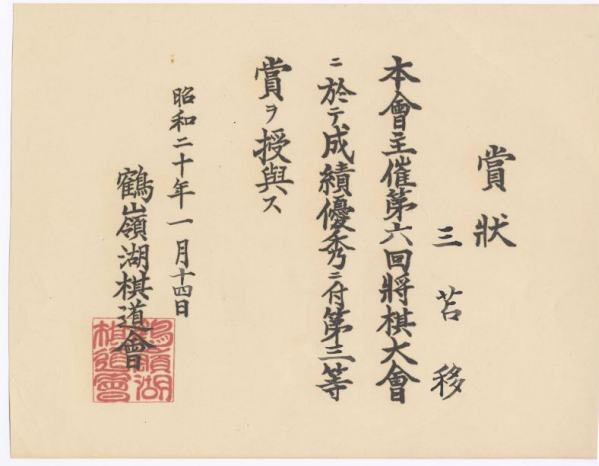 賞狀
三苫移
本會主催第六回將棋大會
ニ於テ成績優秀ニ付第三等
賞ヲ授與ス
昭和二十年一月十四日
鶴嶺湖棋道會
鶴嶺湖
棋道會